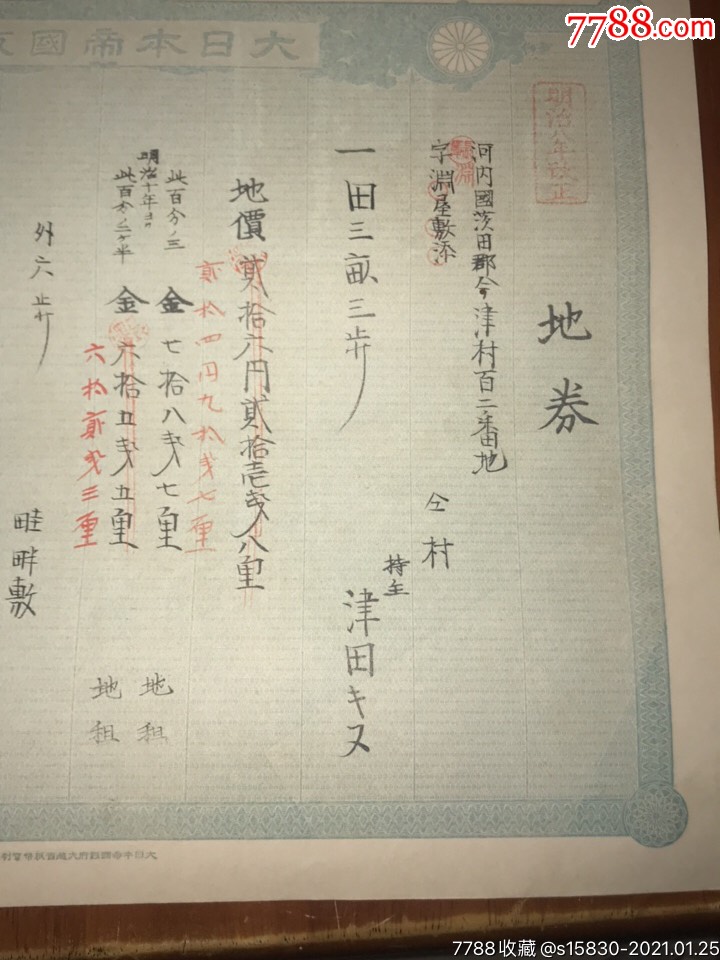 7788.com
大日本帝國政
明治八年改正
地券
河内國茨田郡今津村百二番地
字淵屋敷添
仝村
一田三畝三歩
持主
津田キヌ
地價貳拾六円貳拾壱銭八厘
貳拾四円九拾銭七厘
此百分ノ三
金七拾八銭七厘
地租
明治十年ヨリ
此百分ノ二ケ半
金六拾五銭五厘
地租
六拾貳銭三厘
外六歩
畦畔敷
大日本帝國政府大蔵省紙幣局製
7788收藏@s15830-2021.01.25